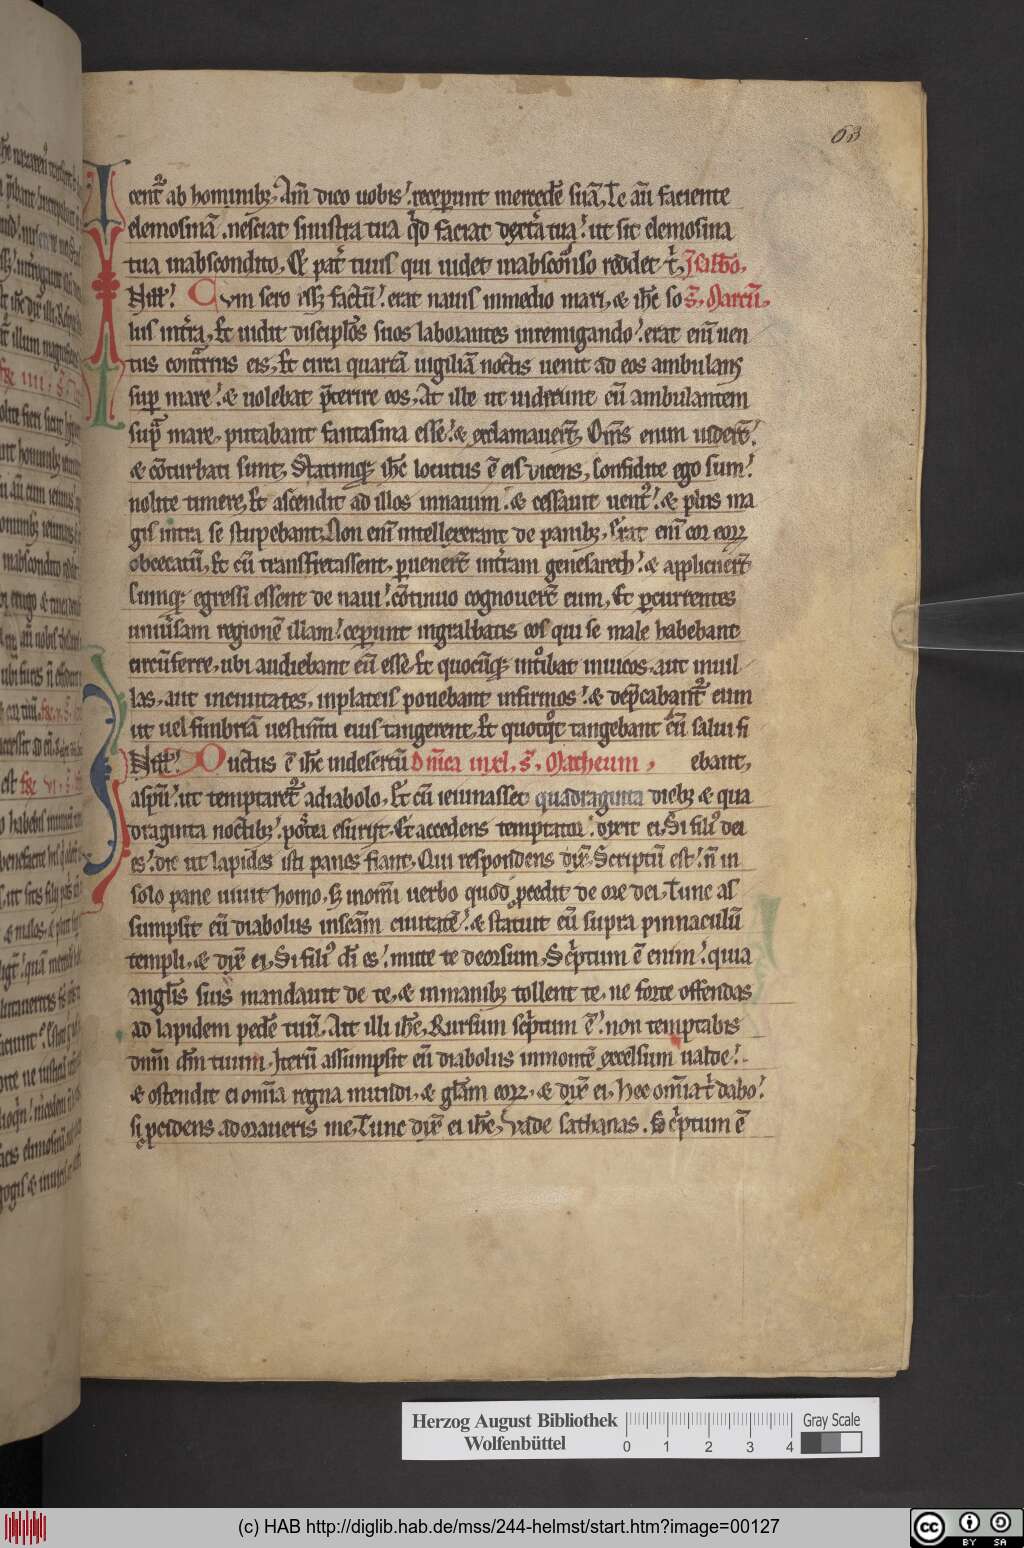 63
centᷣ ab hominibꝫ. Am̅ dico uobis. receperunt mercede̅ sua̅. Te au̅ faciente
elemosina̅. nesciat sinistra tua qͥd faciat dext̾a tua. ut sit elemosina
tua inabscondito. Et pat̾ tuus qui uidet inabsconso reddet tͥ. Sabb̅o.
In ill̅. Cvm sero ess& factu̅. erat nauis inmedio mari. & ih̅c so S. Marcu̅.
lus int̾ra. Et uidit discipłos suos laborantes inremigando. erat eni̅ uen
tus contrarius eis. Et circa quarta̅ uigilia̅ noctis uenit ad eos ambulans
sup mare. & uolebat p̅terire eos. At illi ut uiderunt eu̅ ambulantem
supͣ mare. putabant fantasma esse. & exclamauer̅t. Om̅s enim uider̅t.
& co̅turbati sunt. Statimqꝫ ih̅c locutus e̅ eis dicens. Confidite ego sum.
nolite timere. Et ascendit ad illos innauim. & cessauit uentꝰ. & plus ma
gis intra se stupebant. Non eni̅ intellexerant de panibꝫ. Erat eni̅ cor eoꝝ
obcecatu̅. Et cu̅ transfretassent. puener̅t int̾ram genesareth. & applicuer̅t
Cumqꝫ egressi essent de naui. co̅tinuo cognouer̅t eum. Et pcurrentes
uniu̾sam regione̅ illam. ceperunt ingrabbatis eos qui se male habebant
circu̅ferre. ubi audiebant eu̅ esse. Et quocu̅qꝫ intͦibat inuicos. aut inuil
las. aut inciuitates. inplateis ponebant infirmos. & dep̅cabantᷣ eum
ut uel fimbria̅ uestim̅ti eius tangerent. Et quotqͦt tangebant eu̅ salui fi
In ill̅. Ductus e̅ ih̅c indesertu̅ Dn̅ica in xl. S. Matheum. ebant.
aspu̅. ut temptaretᷣ adiabolo. Et cu̅ ieiunasset quadraginta diebꝫ & qua
draginta noctibꝫ. postea esuriit. Et accedens temptator. dixit ei. Si filiꝰ dei
es. dic ut lapides isti panes fiant. Qui respondens dix̅. Scriptu̅ est. n̅ in
solo pane uiuit homo. s; inom̅i uerbo quod pcedit de ore dei. Tunc as
sumpsit eu̅ diabolus insca̅m ciuitate̅. & statuit eu̅ supra pinnaculu̅
templi. & dix̅ ei. Si filiꝰ di̅ es. mitte te deorsum. Scͥptum e̅ enim. quia
anglis suis mandauit de te. & inmanibꝫ tollent te. ne forte offendas
ad lapidem pede̅ tuu̅. Ait illi ih̅c. Rursum scͥptum e̅. non temptabis
dnm̅ dm̅ tuum. Iteru̅ assumpsit eu̅ diabolus inmonte̅ excelsum ualde.
& ostendit ei omi̅a regna mundi. & gła̅m eoꝝ. & dix̅ ei. Hec omi̅a tͥ dabo.
si pcidens adoraueris me. Tunc dix̅ ei ih̅c. Vade sathanas. Scͥptum e̅
Herzog August Bibliothek
Wolfenbüttel
0 1 2 3 4
Gray Scale
(c) HAB http://diglib.hab.de/mss/244-helmst/start.htm?image=00127
cc BY SA